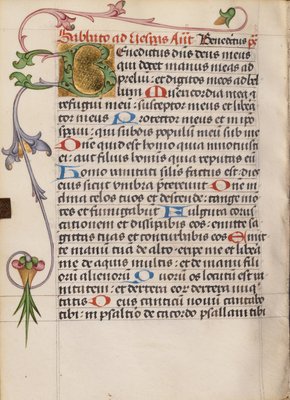 Sabbato ad Vesperas Ant Benedictus
Benedictus dns deus meus
qui docet manus meas ad
prelium: et digitos meos ad bel
lum Misericordia mea et
refugium meum: susceptor meus et libera
tor meus Protector meus et in ipso
speravi: qui subdis populum meum sub me
Domine quid est homo quia innotuisti
ei: aut filius hominis quia reputas eum
Homo vanitati similis factus est: di
es eius sicut umbra pretereunt Domine in
clina celos tuos et descende: tange mon
tes et fumigabunt Fulgura corus
cationem et dissipabis eos: emitte sa
gittas tuas et conturbabis eos Emit
te manum tuam de alto: eripe me et libera
me de aquis multis: et de manu fili
orum alienorum Quorum os locutum est va
nitatem: et dextera eorum dextera iniqui
tatis Deus canticum novum cantabo
tibi: in psalterio decacordo psallam tibi